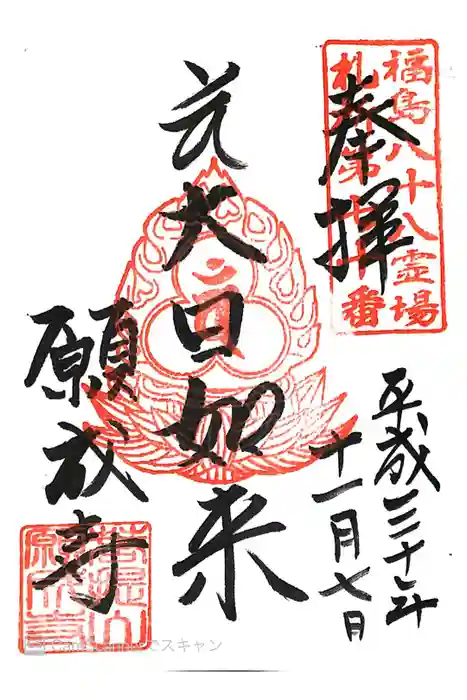 福島八十八霊場
奉拝
平成三十年
十一月七日
大日如来
願成寺
CamScannerでスキャン